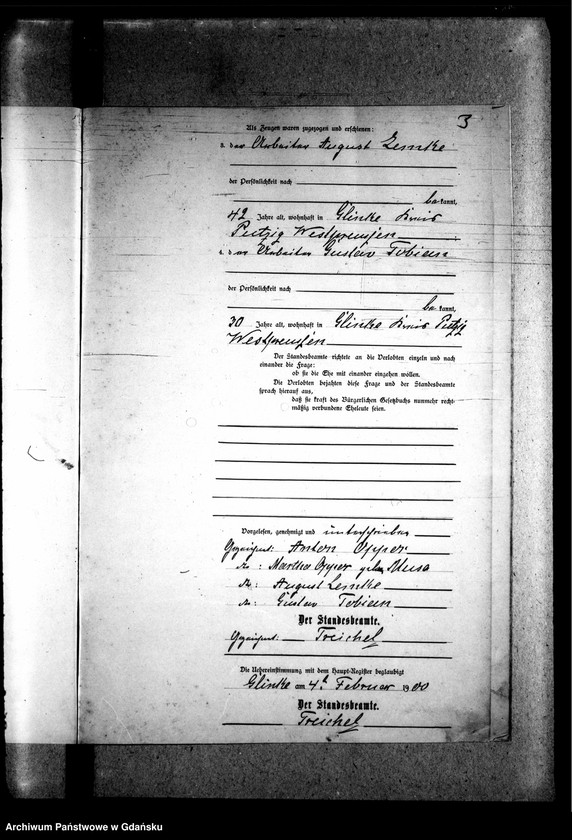 3
Als Zeugen waren zugezogen und erschienen:
der Arbeiter August Lemke
der Persönlichkeit nach
be kannt,
42 Jahre alt, wohnhaft in Glinke Kreis
Putzig Westpreußen
der Arbeiter Gustav Tobien
der Persönlichkeit nach
be kannt,
30 Jahre alt, wohnhaft in Glinke Kreis Putzig
Westpreußen
Der Standesbeamte richtete an die Verlobten einzeln und nach
einander die Frage:
ob sie die Ehe mit einander eingehen wollen.
Die Verlobten bejahten diese Frage und der Standesbeamte
sprach hierauf aus,
daß sie kraft des Bürgerlichen Gesetzbuchs nunmehr recht-
mäßig verbundene Eheleute seien.
Vorgelesen, genehmigt und unterschrieben
Gezeichnet: Anton Opper
Martha Opper geb. Musa
August Lemke
Gustav Tobien
Der Standesbeamte.
Gezeichnet: Treichel
Die Uebereinstimmung mit dem Haupt-Register beglaubigt
Glinke am 4 Februar 1900
Der Standesbeamte.
Treichel
Archiwum Państwowe w Gdańsku